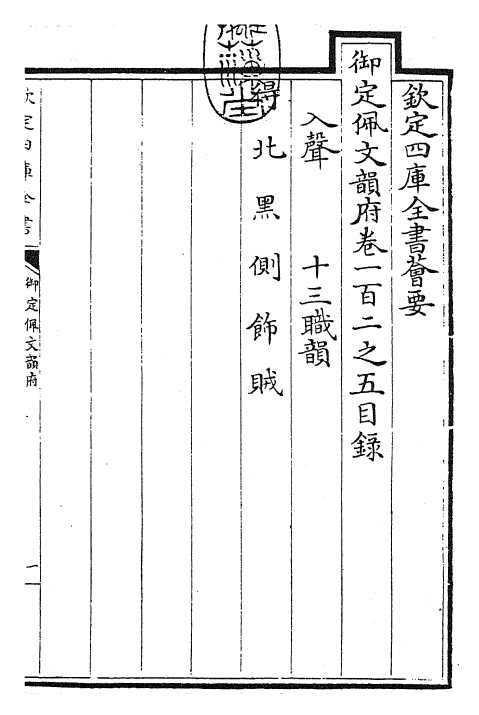 欽定四庫全書薈要
御定佩文韻府卷一百二之五目録
入聲　十三職韻
得　北　黑　側　飾　賊
御定佩文韻府
一